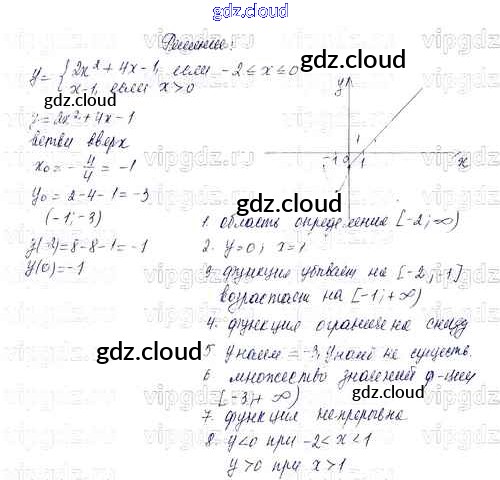 gdz.cloud
Решение!
y = { 2x² + 4x - 1, если -2 ≤ x ≤ 0
x - 1, если x > 0
gdz.cloud
y = 2x² + 4x - 1
ветви вверх
x₀ = - 4/4 = -1
y₀ = 2 - 4 - 1 = -3
(-1; -3)
y(-2) = 8 - 8 - 1 = -1
y(0) = -1
y
1
-1 0 1 x
gdz.cloud
1. область определения [-2; ∞)
2. y = 0, x = 1
3. функция убывает на [-2; -1]
возрастает на [-1; +∞)
4. функция ограничена снизу
gdz.cloud
5. y наим = -3, y наиб не существ.
6. множество значений ф-ции
[-3; +∞)
gdz.cloud
7. функция непрерывна
8. y<0 при -2 < x < 1
y > 0 при x > 1
gdz.cloud